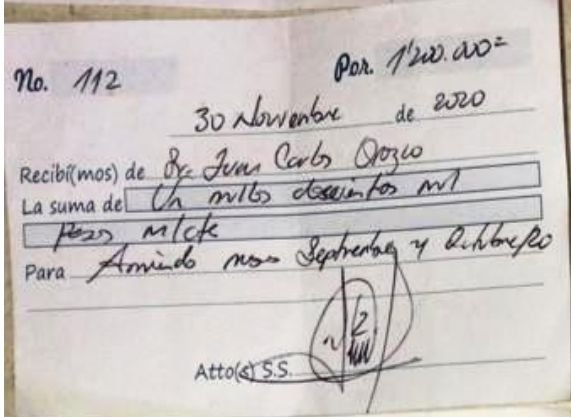 No. 112 Por. 1'200.000=
30 Noviembre de 2020
Recibí(mos) de Sr. Juan Carlos Orozco
La suma de Un millon doscientos mil
Pesos m/cte
Para Arriendo meses Septiembre y Octubre/20
Atto(s) S.S.